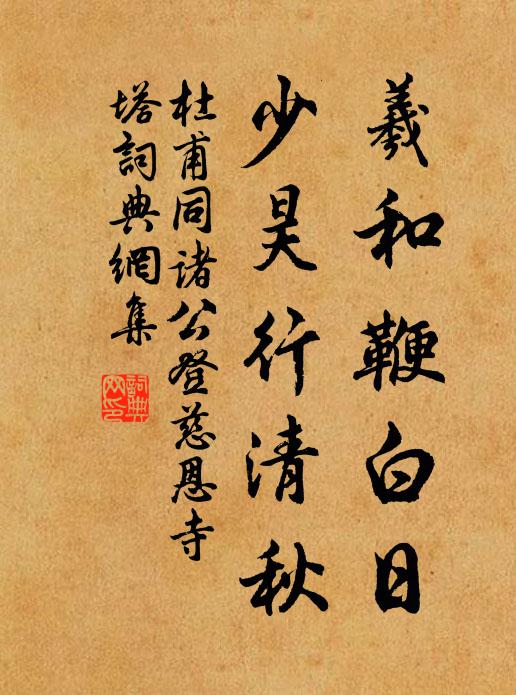 羲和鞭白日
少昊行清秋
杜甫同诸公登慈恩寺
塔詞典網集
詞典
网印